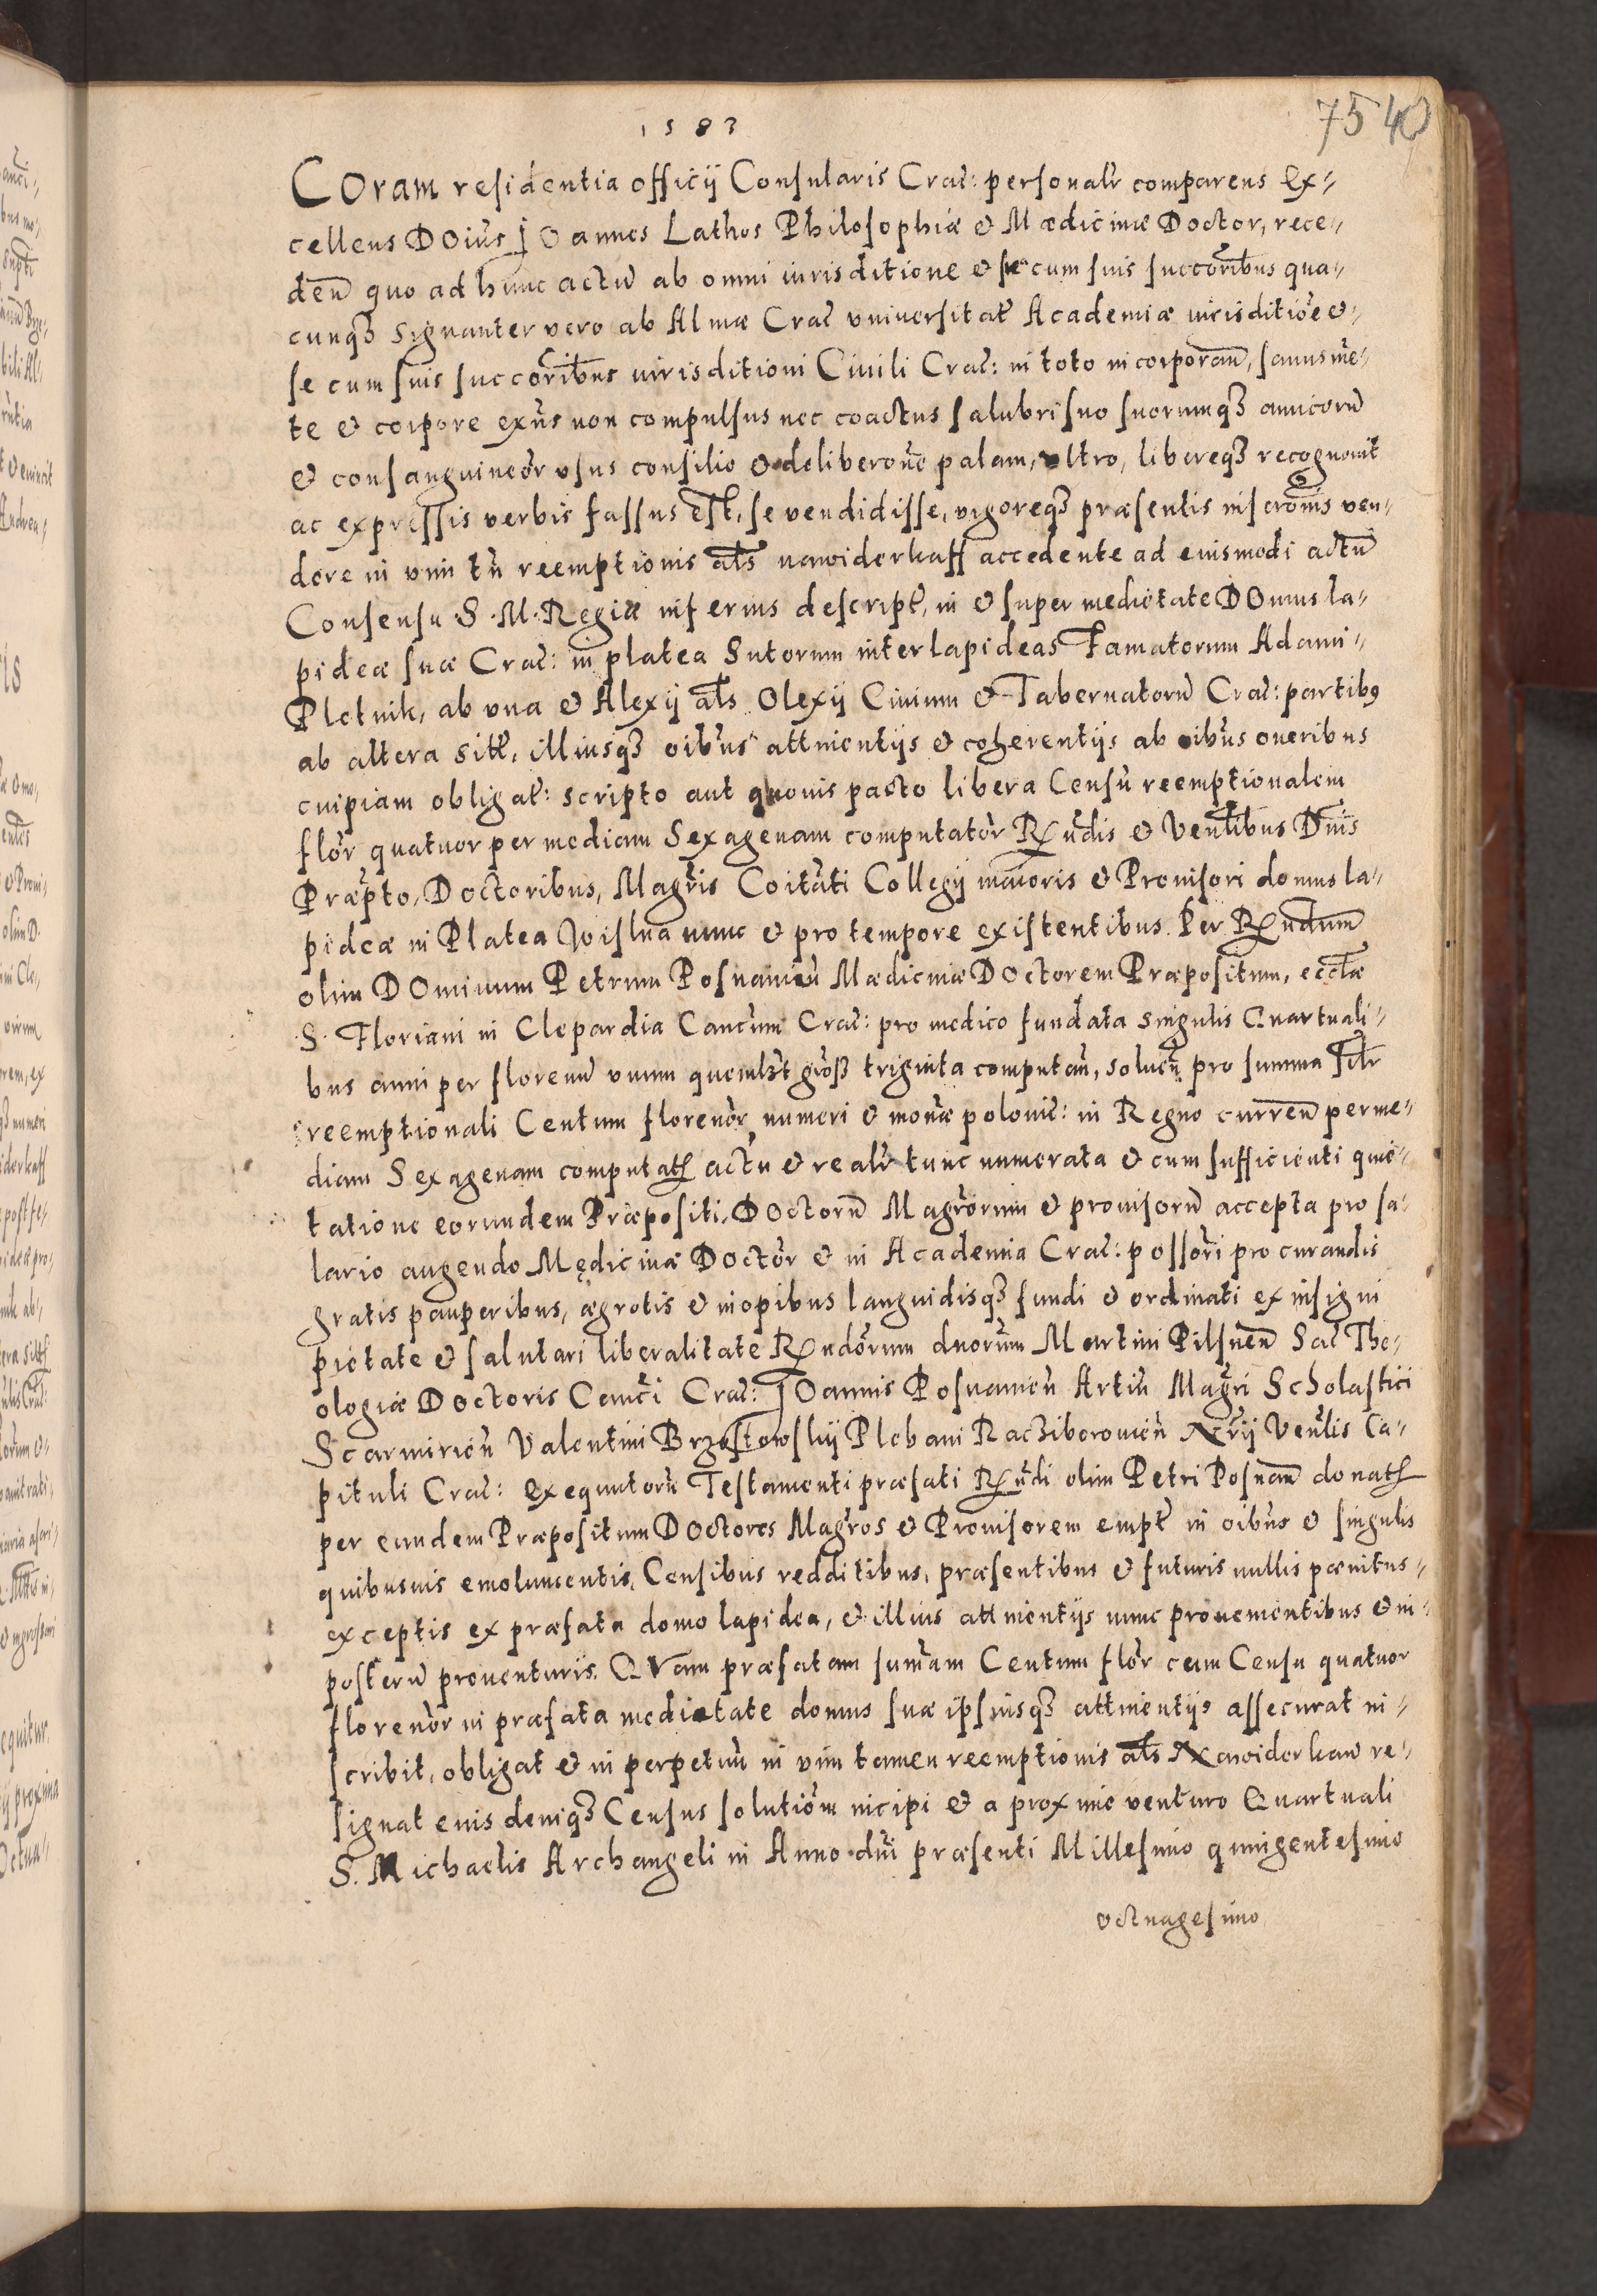 1583
7540
COram residentia officij Consularis Crac: personalr comparens Ex-
cellens DOius JOannes Lathos Philosophiæ & Mædicinæ Doctor, rece-
den quo ad hunc actu ab omni iurisditione & se cum suis succoribus qua-
cunqȝ signanter vero ab Almæ Crac vniversitat Academiæ iurisditioe &
se cum suis succoribus iurisditioni Ciuili Crac: in toto incorporan, sanus me-
te & corpore exns non compulsus nec coactus salubri suo suorumqȝ amicoru
& consanguineor vsus consilio & deliberone palam, vltro, libereqȝ recognouit
ac expressis verbis fassus est, se vendidisse, vigoreqȝ præsentis inscronis ven-
dere in vim tn reemptionis als nawiderkaff accedente ad eiusmodi actu
Consensu S. M. Regiæ inferius descript, in & super medietate DOmus la-
pideæ suæ Crac: in platea Sutorum inter lapideas Famatorum Adami
Pletnik, ab vna & Alexij als Olexij Ciuium & Tabernatoru Crac: partibꝰ
ab altera sitt, illiusqȝ oibus attinentijs & coherentijs ab oibus oneribus
cuipiam obligat: scripto aut quouis pacto libera Censu reemptionalem
flor quatuor per mediam Sexagenam computator Rndis & Venlibus Dnis
Præpto, Doctoribus, Magris Coitati Collegij maioris & Prouisori domus la-
pideæ in Platea Wislna nunc & pro tempore existentibus. Per Rndum
olim DOminum Petrum Posnanien Mædicinæ DOctorem Præpositum, ecclæ
S. Floriani in Clepardia Cancum Crac: pro medico fundata singulis Quartuali-
bus anni per florenu vnum quemlȝt gross triginta computan, soluen pro summa sctr
reemptionali Centum florenor numeri & monæ polonic: in Regno curren per me-
diam Sexagenam computat actu & realr tunc numerata & cum sufficienti quie-
tatione eorundem Præpositi, DOctoru Magrorum & prouisoru accepta pro sa-
lario augendo Mędicinæ DOctor & in Academia Crac: possori pro curandis
gratis pauperibus, ægrotis & inopibus languidisqȝ fundi & ordinati ex insigni
pietate & salutari liberalitate Rndorum dnorum Martini Pilsnen Sac The-
ologiæ DOctoris Canci Crac: JOannis Posnanien Artiu Magri Scholastici
Scarmirien Valentini Brzostowskij Plebani Racziborouien Nrij Venlis Ca-
pituli Crac: Exequutoru Testamenti præfati Rndi olim Petri Posnan donat
per eundem Præpositum DOctores Magros & Prouisorem empt in oibus & singulis
quibusuis emolumentis, Censibus redditibus, præsentibus & futuris nullis pænitus
exceptis ex præfata domo lapidea, & illius attinentijs nunc prouenientibus & in
posteru prouenturis. QVam præfatam sumam Centum flor cum Censu quatuor
florenor in præfata medietate domus suæ ipsiusqȝ attinentijs assecurat in-
scribit, obligat & in perpetuu in vim tamen reemptionis als Nawiderkaw re-
signat eiusdemqȝ Census solutiom incipi & a proximo venturo Quartuali
S. Michaelis Archangeli in Anno dni præsenti Millesimo quingentesimo
octuagesimo